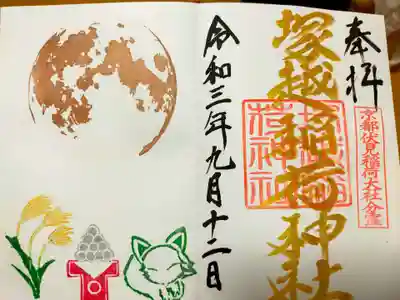 奉拝
京都伏見稲荷大社分霊
塚越稲荷神社
令和三年九月十二日